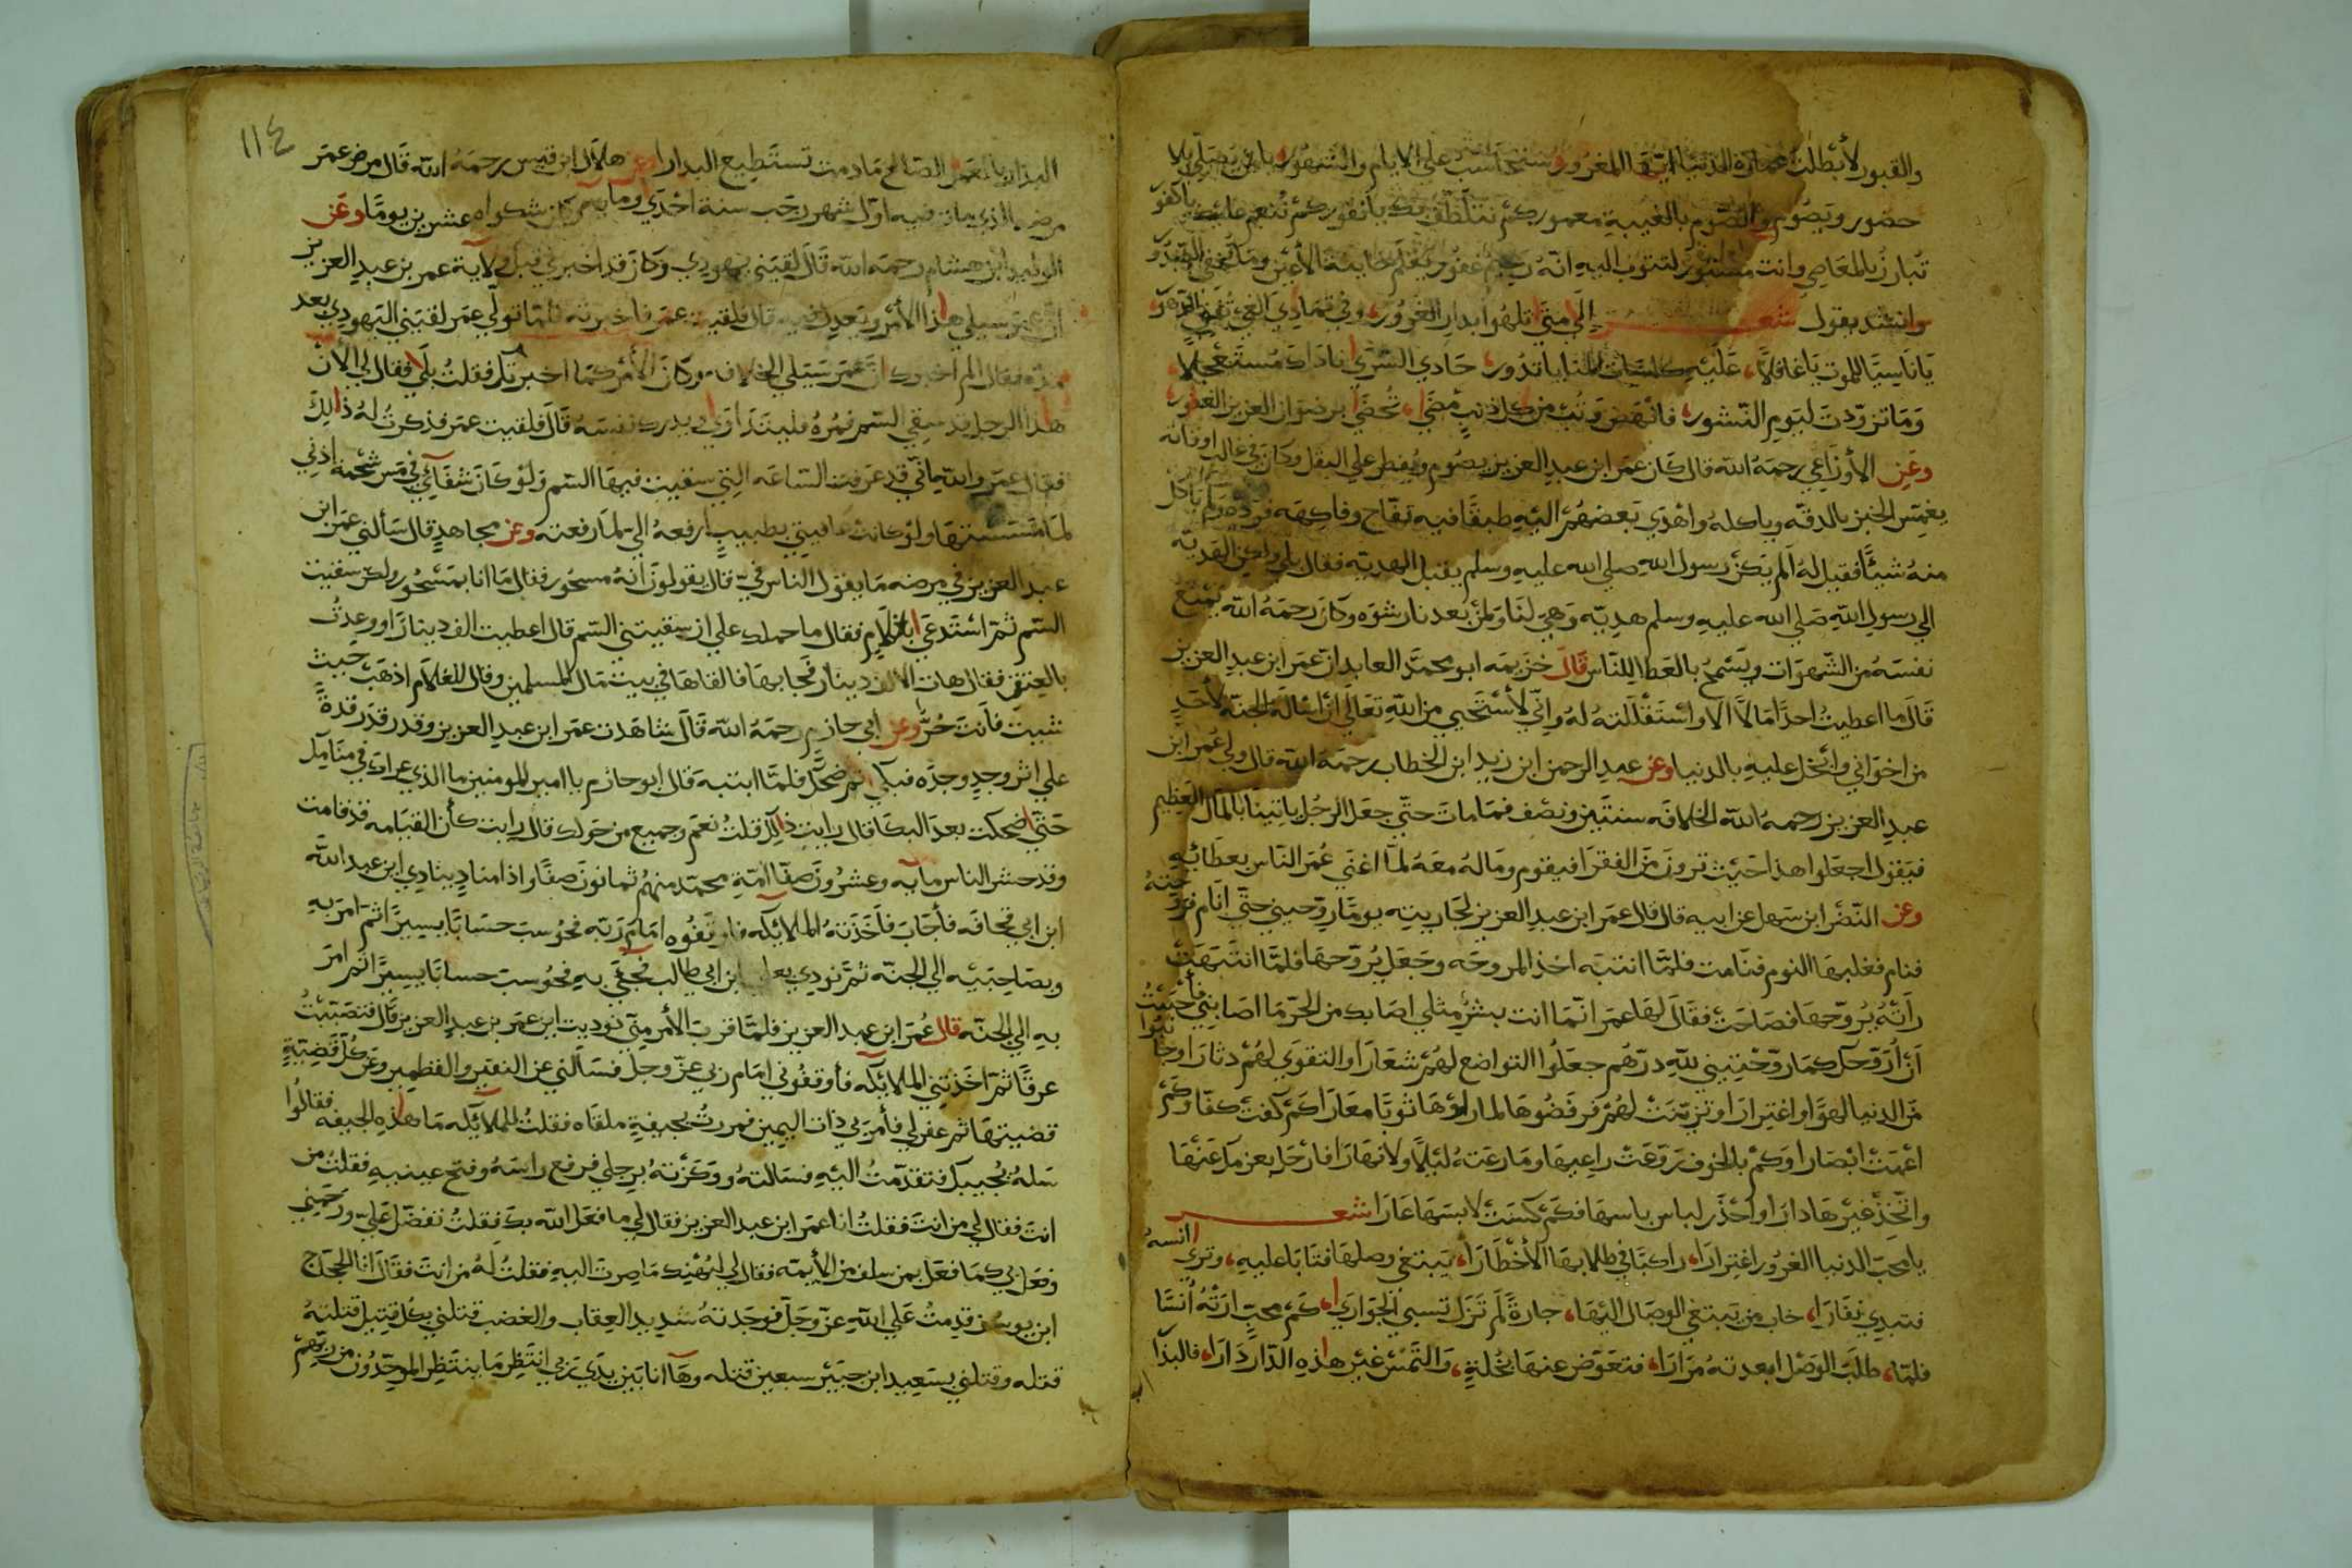 والقبور لأبطلت عمارة الدنيا ايها المغرور ستحاسب على الايام والشهور يا من يصلي بلا
حضور ويصوم والصوم بالغيبة معمور كم نتلطف بك يا نفور كم ننعم عليك يا كفور
تبارز بالمعاصي وانت مستور لتتوب اليه انه رحيم غفور يعلم خاينة الأعين وما تخفي الصدور
وانشد يقول شعر الى متى تلهوا بدار الغرور، وفي تمادي الغي تفني الدهور
يا ناسيا للموت يا غافلا، عليه كاسات المنايا تدور، حادي السرى نادا مستعجلا،
وما تزودت ليوم النشور، فانهض وتب من كل ذنب مضى، تحضى برضوان العزيز الغفور،
وعن الأوزاعي رحمه الله قال كان عمر ابن عبد العزيز يصوم ويفطر على البقل وكان في غالب اوقاته
يغمس الخبز بالدقه وياكله واهدى بعضهم اليه طبقا فيه تفاح وفاكهه فرده ولم يأكل
منه شيئا فقيل له الم يكن رسول الله صلى الله عليه وسلم يقبل الهدية فقال بلى ولكن الهدية
الى رسول الله صلى الله عليه وسلم هديه وهي لنا ولمن بعدنا رشوه وكان رحمه الله يمنع
نفسه من الشهوات ويسمح بالعطا للناس قال خزيمه ابو محمد العابد ان عمر ابن عبد العزيز
قال ما اعطيت احدا مالا الا واستقللته له واني لأستحيي من الله تعالى ان اساله الجنة لأحد
من اخواني وابخل عليه بالدنيا وعن عبد الرحمن ابن زيد ابن الخطاب رحمه الله قال ولي عمر ابن
عبد العزيز رحمه الله الخلافه سنتين ونصف فما مات حتى جعل الرجل ياتينا بالمال العظيم
فيقول اجعلوا هذا حيث ترون من الفقرا فيقوم وماله معه لما اغنى عمر الناس بعطائه
وعن النضر ابن سهل عن ابيه قال قال عمر ابن عبد العزيز لجاريته يوما روحيني حتى انام فروحته
فنام فغلبها النوم فنامت فلما انتبه اخذ المروحه وجعل يروحها فلما انتبهت
رأته يروحها فصاحت فقال لها عمر انما انت بشر مثلي اصابك من الحر ما اصابني فأحببت
أن أروحك كما روحتيني لله درهم جعلوا التواضع لهم شعارا والتقوى لهم دثارا وجانبوا
من الدنيا لهوا واغترارا وتزينت لهم فرفضوها لما راوها ثوبا معارا كم كفت كفا وكم
اعمت ابصارا وكم بالخوف روعت راعيها وما رعته ليلا ولا نهارا فارحل بعزمك عنها
واتخذ غيرها دارا واحذر لباس باسها فكم كست لابسها عارا شعر
يا محب الدنيا الغرور اغترارا، راكبا في طلابها الأخطارا، يبتغي وصلها فتابا عليه، وترى انسه
فتبدي نفارا، خاب من يبتغي الوصال اليها، جارة لم تزل تسيئ الجوارا، كم محب ارته أنسا
فلما، طلب الوصل ابعدته مرارا، فتعوض عنها بخلة، والتمس غير هذه الدار دارا، فالبدا

١١٤
البدار بالعمل الصالح ما دمت تستطيع البدارا وعن هلال ابن قيس رحمه الله قال مرض عمر
مرضه الذي مات فيه اول شهر رجب سنة احدى ومايه وكان شكواه عشرين يوما وعن
الوليد ابن هشام رحمه الله قال لقيني يهودي وكان قد اخبرني قبل ولاية عمر بن عبد العزيز
ان عمر سيلي هذا الأمر ويعدل فيه قال فلقيت عمر فاخبرته فلما تولى عمر لقيني اليهودي بعد
مدة فقال الم اخبرك ان عمر سيلي الخلافه وكان الأمر كما اخبرتك فقلت بلى فقال لي الأن
هذا الرجل قد سقي السم فمره فليتداوى ويدرك نفسه قال فلقيت عمر فذكرت له ذلك
فقال عمر والله اني قد عرفت الساعه التي سقيت فيها السم ولو كان شفاي في مس شحمة اذني
لما مسستها ولو كانت عافيتي بطيب ارفعه الي لما رفعته وعن مجاهد قال سألني عمر ابن
عبد العزيز في مرضه ما يقول الناس في قال يقولون أنه مسحور فقال ما انا بمسحور ولكن سقيت
السم ثم استدعى بالغلام فقال ما حملك على ان سقيتني السم قال اعطيت الف دينارا ووعدت
بالعتق فقال هات الالف دينار فجا بها فالقاها في بيت مال المسلمين وقال للغلام اذهب حيث
شيت فانت حر وعن أبي حازم رحمه الله قال شاهدت عمر ابن عبد العزيز وقد رقد رقدة
على اثر وجد وجده فبكى ثم ضحك فلما انتبه قال ابو حازم يا امير المومنين ما الذي عراك في منامك
حتى ضحكت بعد البكا قال رايت ذلك قلت نعم وجميع من حولك قال رايت كأن القيامه قد قامت
وقد حشر الناس مايه وعشرون صفا امة محمد منهم ثمانون صفا واذا مناد ينادي ابن عبد الله
ابن ابي قحافه فأجاب فأخذته الملائكه فاوقفوه امام ربه فحوسب حسابا يسيرا ثم امر به
وبصاحبيه الى الجنه ثم نودي بعلي ابن ابي طالب فجئ به فحوسب حسابا يسيرا ثم امر
به الى الجنه قال عمر ابن عبد العزيز فلما قرب الأمر مني نوديت ابن عمر بن عبد العزيز قال فتصببت
عرقا ثم اخذتني الملائكه فأوقفوني امام ربي عز وجل فسألني عن النقير والقطمير وعن كل قضية
قضيتها ثم غفر لي فأمر بي ذات اليمين فمررت بجيفة ملقاه فقلت للملائكه ما هذه الجيفه فقالوا
سله يجيبك فتقدمت اليه فسالته ووكزته برجلي فرفع راسه وفتح عينيه فقلت من
انت فقال لي من انت فقلت انا عمر ابن عبد العزيز فقال لي ما فعل الله بك فقلت تفضل علي ورحمني
وفعل بي كما فعل بمن سلف من الأيمه فقال لي ليهنيك ما صرت اليه فقلت له من انت فقال انا الحجاج
ابن يوسف قدمت على الله عز وجل فوجدته شديد العقاب والغضب قتلني بكل قتيل قتلته
قتله وقتلني بسعيد ابن جبير سبعين قتله وها انا بين يدي ربي انتظر ما ينتظر الموحدون من ربهم